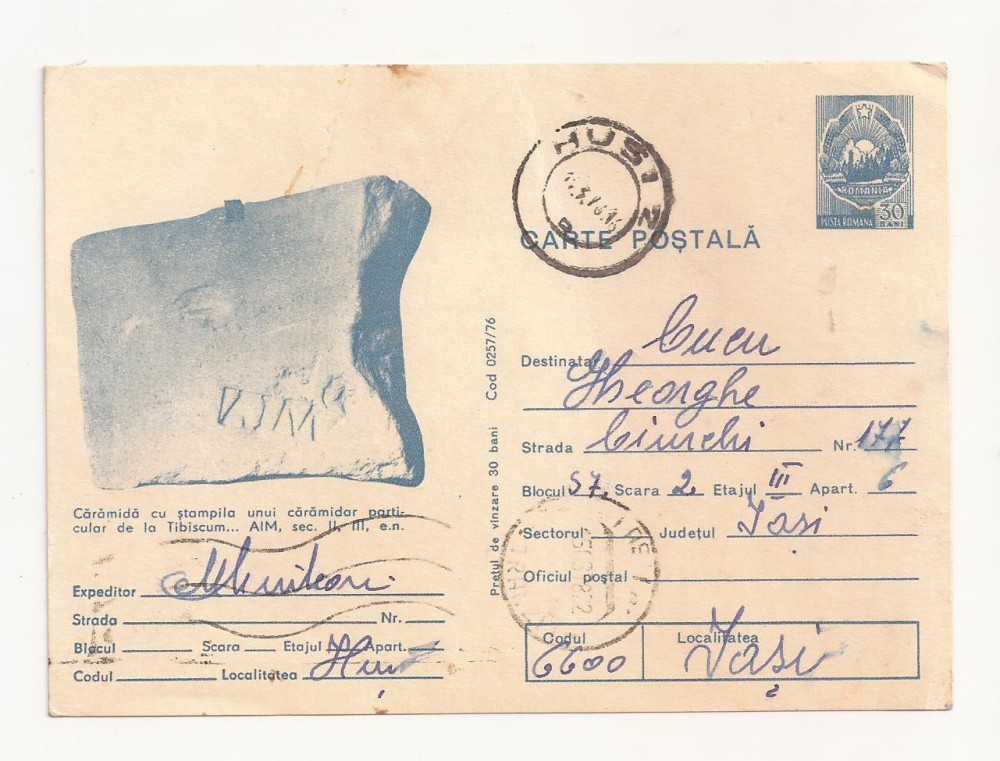 HUSI 2
ROMANIA
POSTA ROMANA 30 BANI
CARTE POȘTALĂ
Cărămidă cu ștampila unui cărămidar parti-
cular de la Tibiscum... AIM, sec. II, III, e.n.
Expeditor Munteanu
Strada Nr.
Blocul Scara Etajul Apart.
Codul Localitatea Huși
Prețul de vînzare 30 bani Cod 0257/76
Destinatar Cucu
Gheorghe
Strada Ciurchi Nr. 177
Blocul S7. Scara 2. Etajul III Apart. 6
Sectorul Județul Iași
Oficiul poștal
Codul 6600 Localitatea Iași